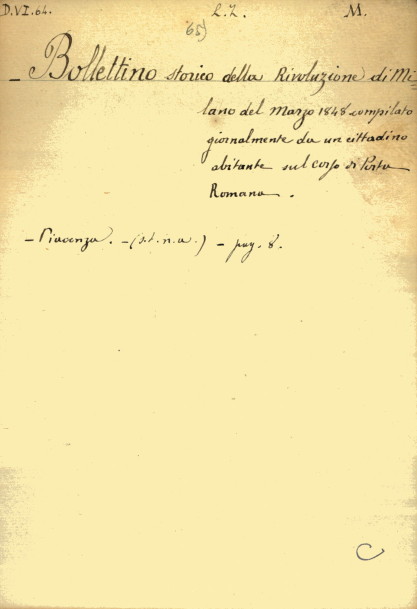 D.VI.64. L.L. M.
65)
_ Bollettino storico della Rivoluzione di Mi=
lano del Marzo 1848 compilato
giornalmente da un cittadino
abitante sul corso di Porta
Romana .
_ Piacenza. _ (s.t.n.a.) _ pag. 8.
C